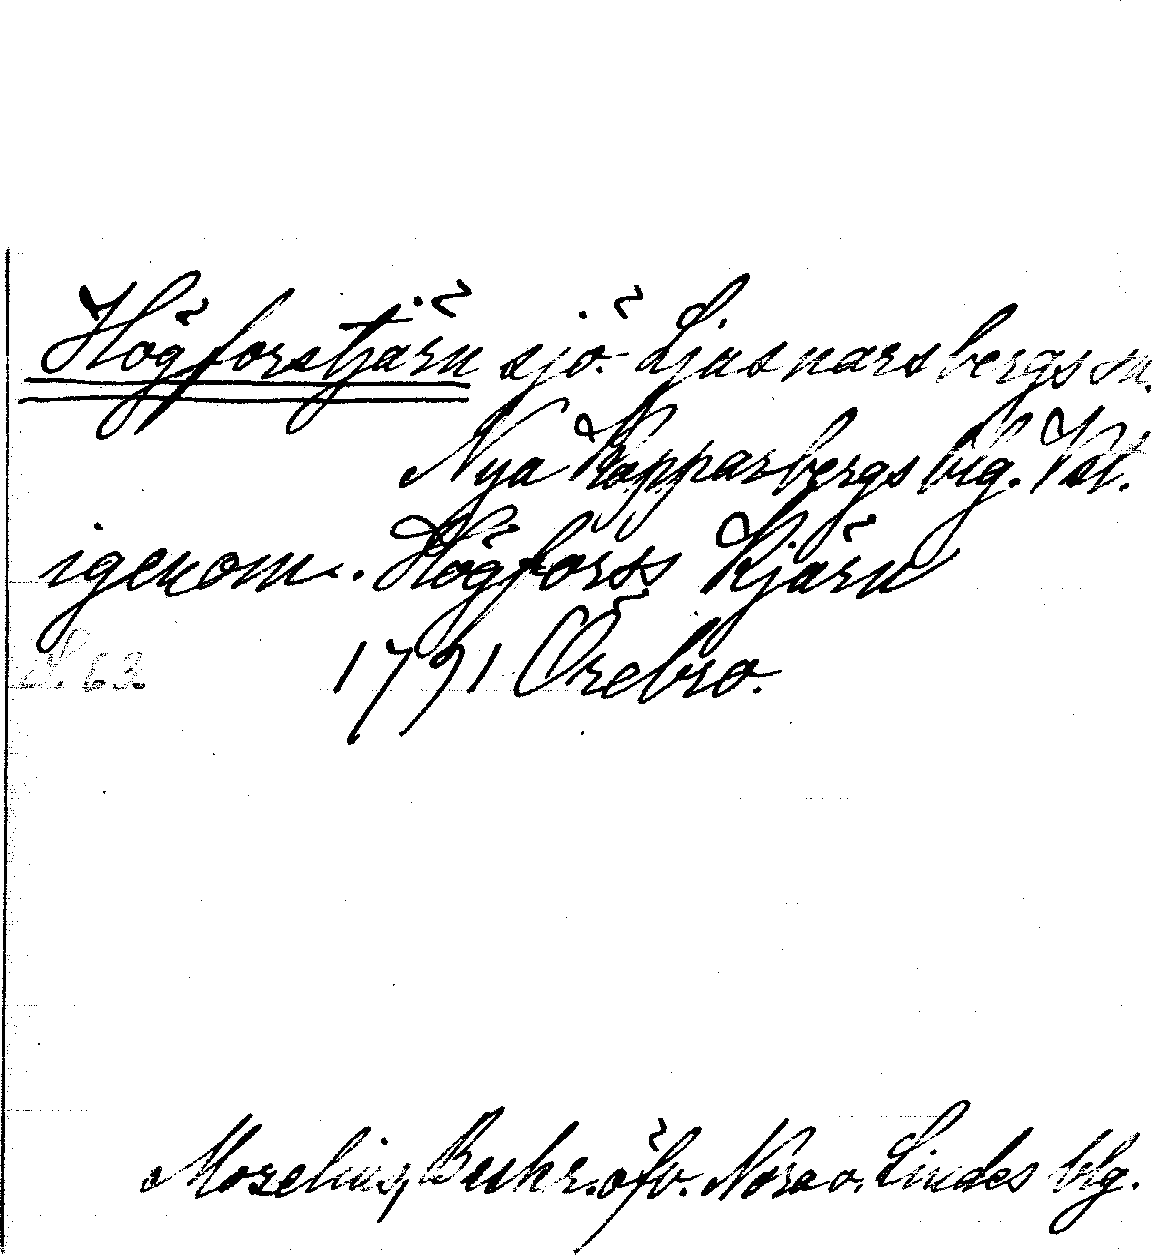 Högforstjärn sjö. Ljusnarsbergs sn.
Nya Kopparbergs blg. Vstm.
igenom. Högforss Kjärn
1791 Örebro.
63
Moselius, Beskr. öfv. Nora o. Lindes blg.